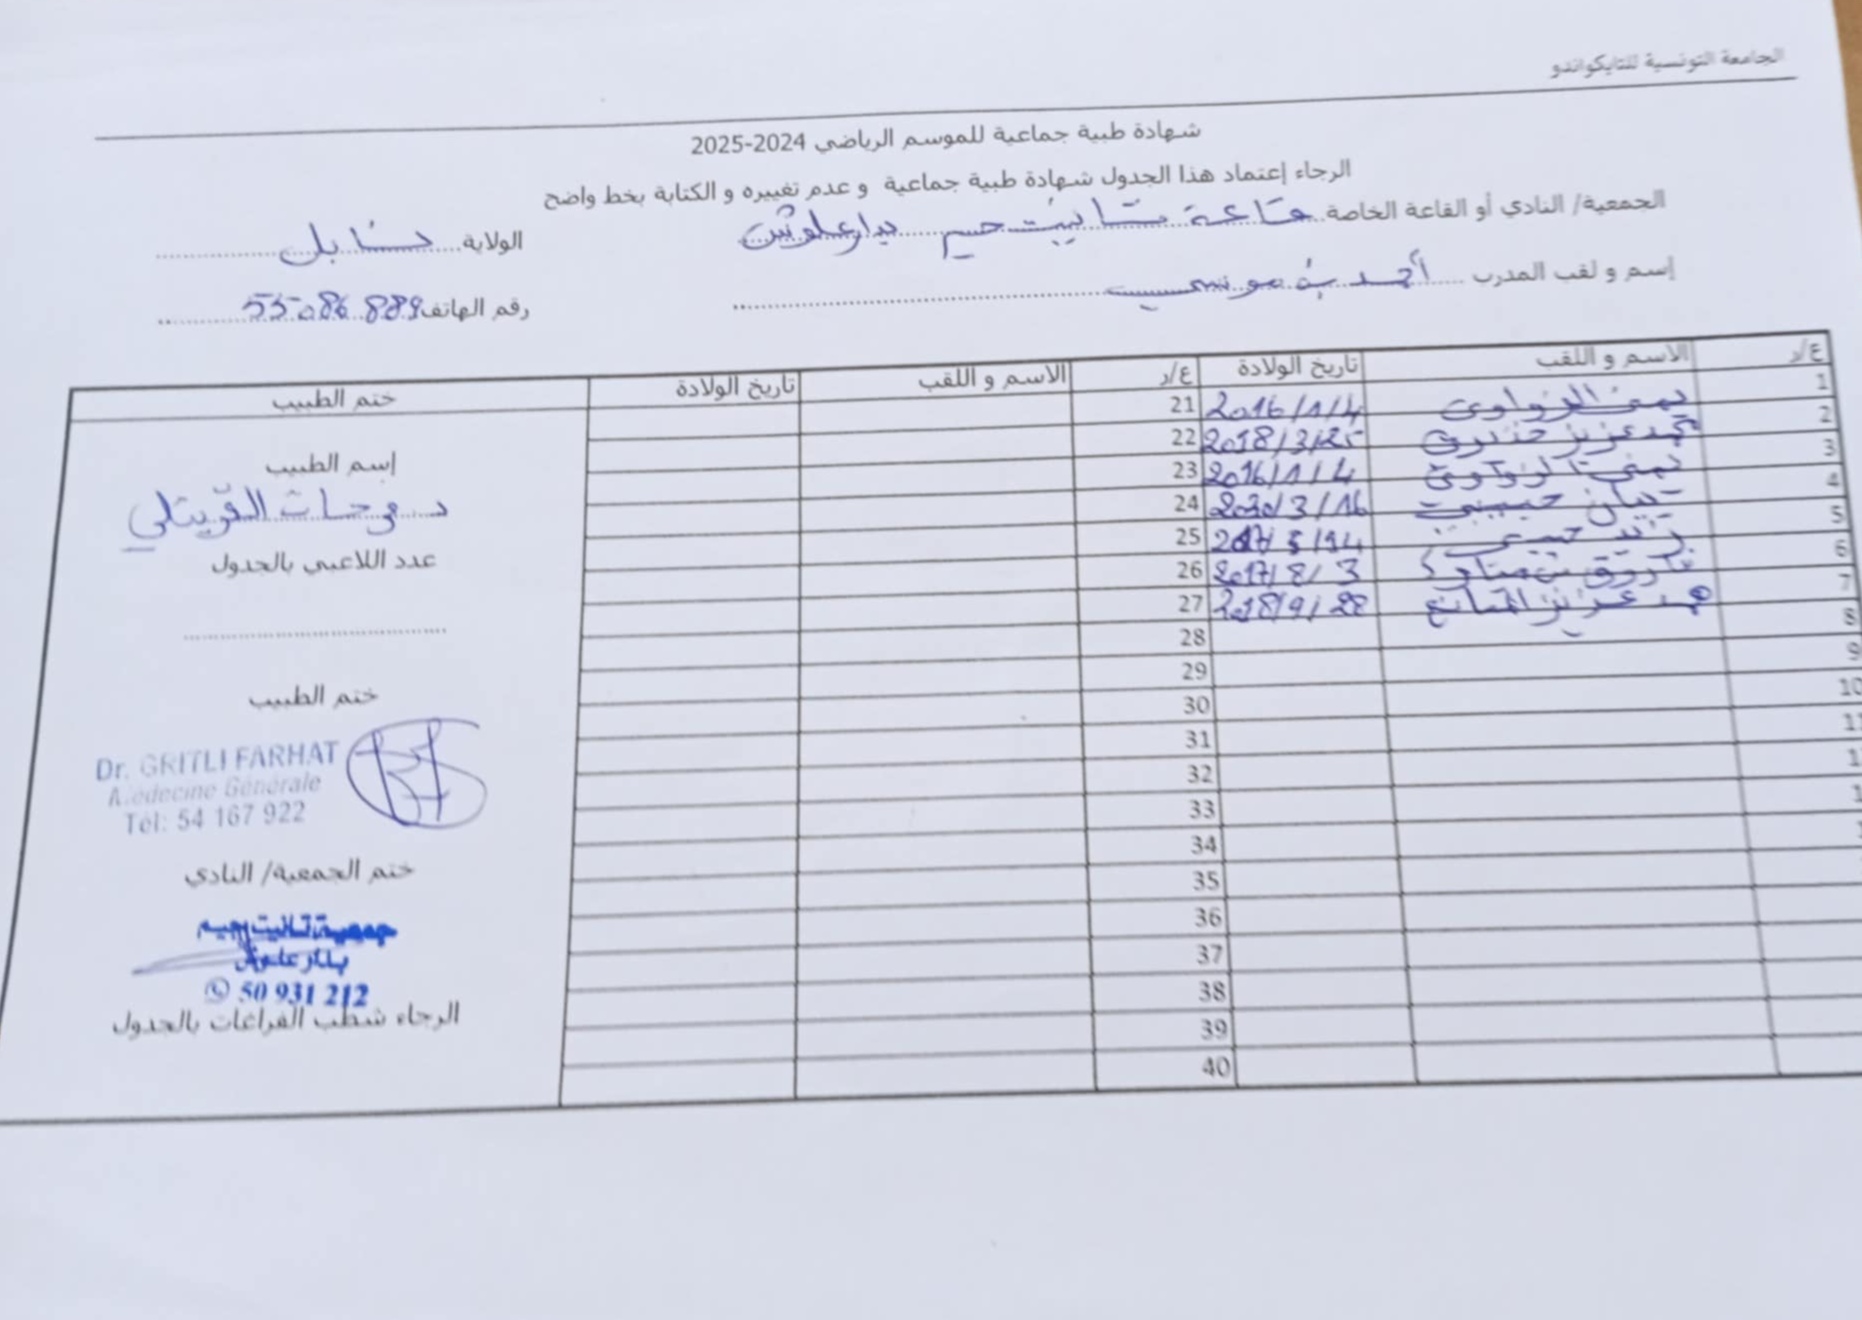 الجامعة التونسية للتايكواندو
شهادة طبية جماعية للموسم الرياضي 2024-2025
الرجاء إعتماد هذا الجدول شهادة طبية جماعية و عدم تغييره و الكتابة بخط واضح
الجمعية/ النادي أو القاعة الخاصة قاعة ستاييت جيم بدار علوش
الولاية نابل
إسم و لقب المدرب أحمد بن موسى
رقم الهاتف 55086889
ع/ر الاسم و اللقب تاريخ الولادة ع/ر الاسم و اللقب تاريخ الولادة ختم الطبيب
1 يمنى الزواوي 2016/1/4 21
2 محمد عزيز 2018/3/25 22
3 يمنى الزواوي 2016/1/4 23
4 بيان حبيبي 3/16 24
5 حبيبي 25
6 2017/8/3 26
7 محمد عزيز المانع 2018/9/28 27
8 28
9 29
10 30
31
32
33
34
35
36
37
38
39
40
إسم الطبيب
د. فرحات القريتلي
عدد اللاعبي بالجدول
ختم الطبيب
Dr. GRITLI FARHAT
Médecine Générale
Tél: 54 167 922
ختم الجمعية/ النادي
جمعية
بدار علوش
50 931 212
الرجاء شطب الفراغات بالجدول